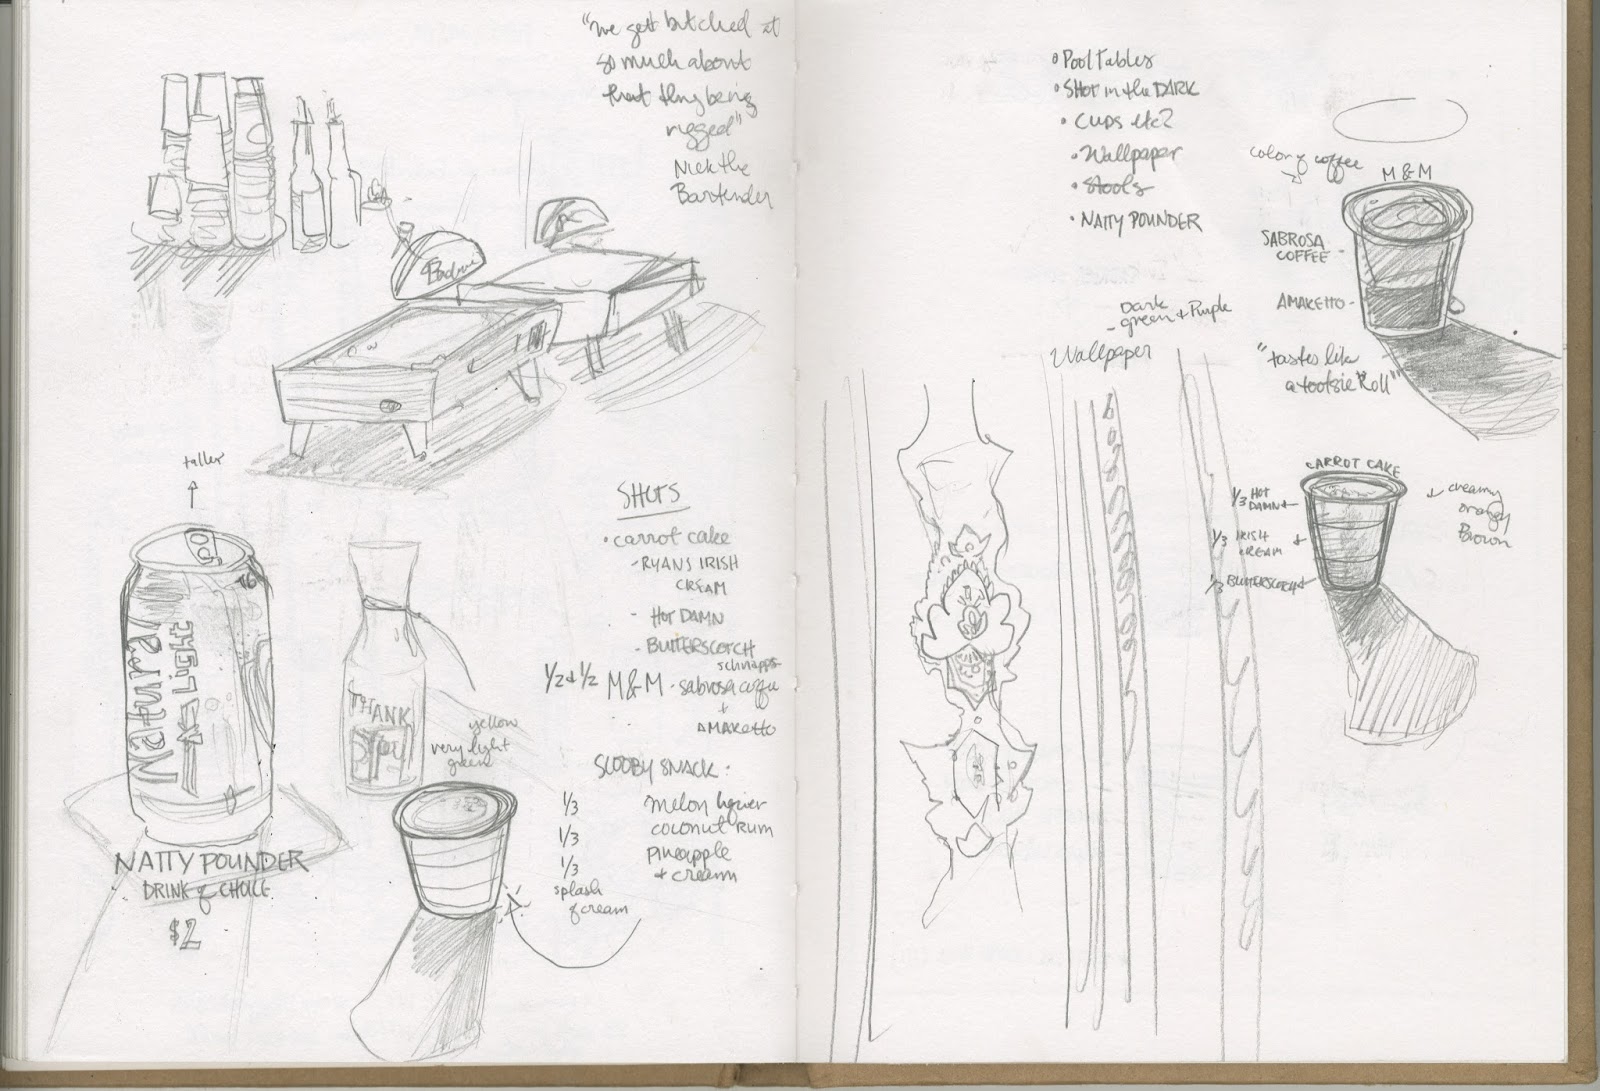 "we get bitched at
so much about
that thing being
rigged"
Nick the
Bartender
taller
16
Natural
Light
NATTY POUNDER
DRINK of CHOICE
$2
THANK
yellow
very light
green
SHOTS
• carrot cake
- RYANS IRISH
CREAM
- HOT DAMN
- BUTTERSCOTCH
schnapps
1/2 & 1/2 M&M - sabrosa coffee
+
AMARETTO
SCOOBY SNACK:
1/3 melon liquer
1/3 coconut RUM
1/3 pineapple
+ cream
splash
of cream
• Pool Tables
• SHOT in the DARK
• CUPS etc?
• Wallpaper
• Stools
• NATTY POUNDER
Dark
green + Purple
- Wallpaper
color of coffee
M&M
SABROSA
COFFEE -
AMARETTO -
"tastes like
a tootsie Roll"
CARROT CAKE
1/3 HOT
DAMN
1/3 IRISH
CREAM
1/3 BUTTERSCOTCH
creamy
orangey
Brown